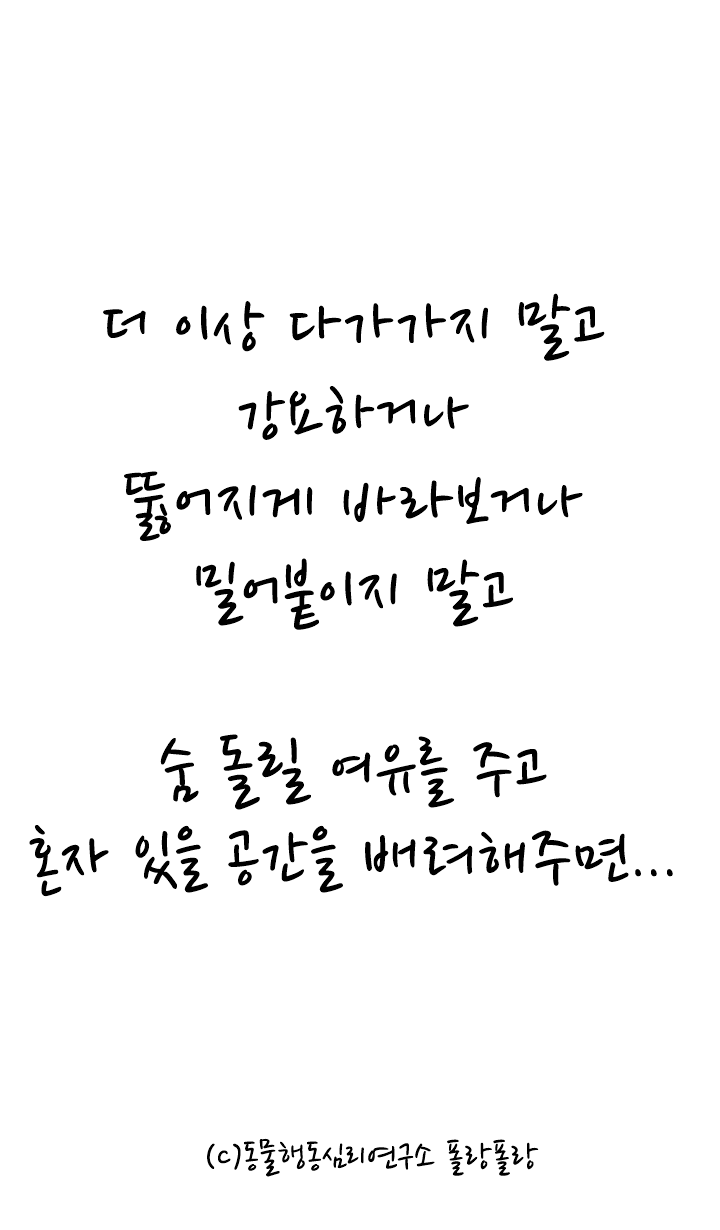 더 이상 다가가지 말고
강요하거나
뚫어지게 바라보거나
밀어붙이지 말고
숨 돌릴 여유를 주고
혼자 있을 공간을 배려해주면...
(c)동물행동심리연구소 폴랑폴랑